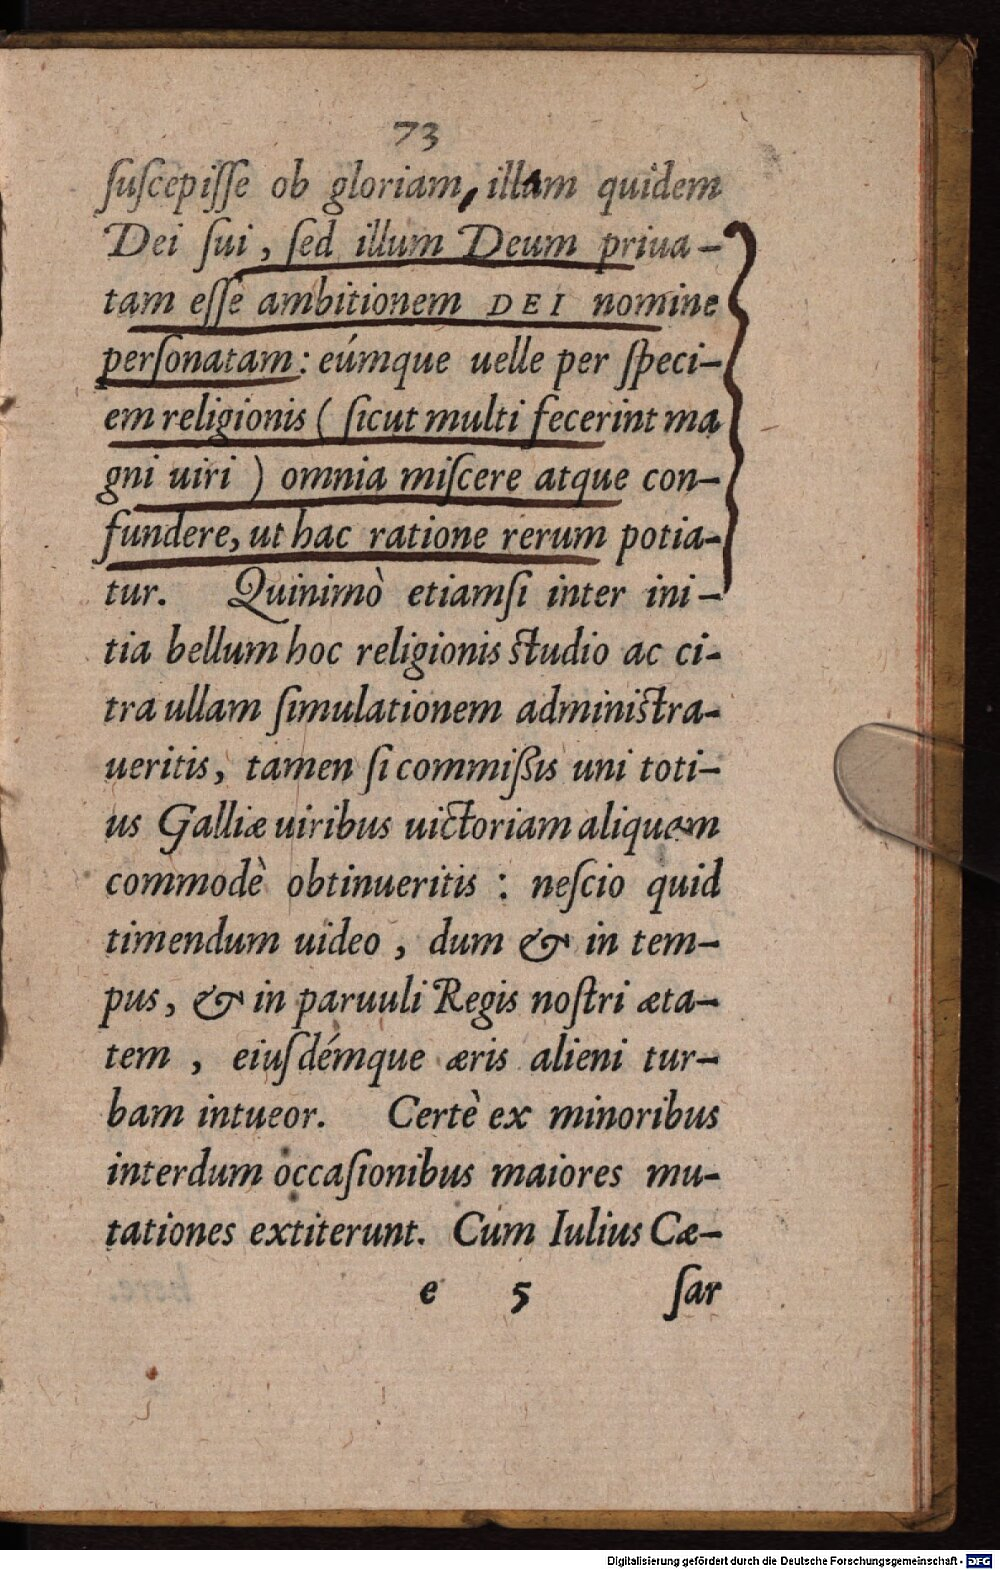 73
ſuſcepiſſe ob gloriam, illam quidem
Dei ſui, ſed illum Deum priua-
tam eſſe ambitionem DEI nomine
perſonatam: eúmque uelle per ſpeci-
em religionis (ſicut multi fecerint ma
gni uiri) omnia miſcere atque con-
fundere, ut hac ratione rerum potia-
tur. Quinimò etiamſi inter ini-
tia bellum hoc religionis ſtudio ac ci-
tra ullam ſimulationem adminiſtra-
ueritis, tamen ſi commiſsis uni toti-
us Galliæ uiribus uictoriam aliquam
commodè obtinueritis: neſcio quid
timendum uideo, dum & in tem-
pus, & in paruuli Regis noſtri æta-
tem, eiuſdémque æris alieni tur-
bam intueor. Certè ex minoribus
interdum occaſionibus maiores mu-
tationes extiterunt. Cum Iulius Cæ-
e 5 ſar
Digitalisierung gefördert durch die Deutsche Forschungsgemeinschaft - DFG